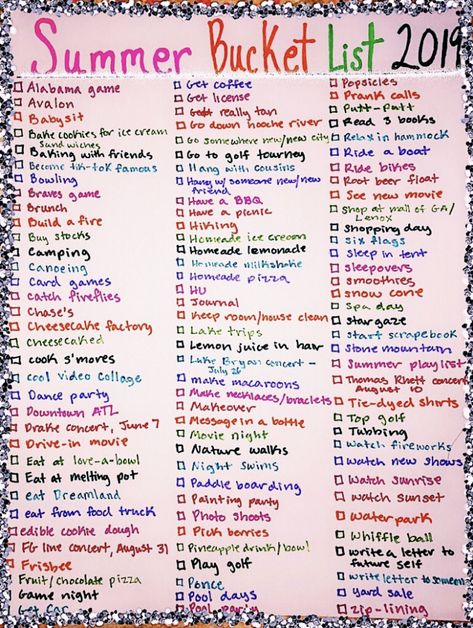 Summer Bucket List 2019
Alabama game
Avalon
Babysit
Bake cookies for ice cream
Sandwiches
Baking with friends
Become tik-tok famous
Bowling
Braves game
Brunch
Build a fire
Buy stocks
Camping
Canoeing
Card games
catch fireflies
Chase's
Cheesecake factory
Cheesecaked
cook s'mores
cool video collage
Dance party
Downtown ATL
Drake concert, June 7
Drive-in movie
Eat at love-a-bowl
Eat at melting pot
eat Dreamland
eat from food truck
edible cookie dough
FG line concert, August 31
Frisbee
Fruit/chocolate pizza
Game night
Get car
Get coffee
Get license
Get really tan
Go down hooche river
Go somewhere new/new city
Go to golf tourney
Hang with cousins
Hang w/ someone new/new
friend
Have a BBQ
Have a picnic
Hiking
Homeade ice cream
Homeade lemonade
Homeade milkshake
Homeade pizza
HU
Journal
Keep room/house clean
Lake trips
Lemon juice in hair
Luke Bryan concert -
July 26
make macaroons
Make necklaces/braclets
Makeover
Message in a bottle
Movie night
Nature walks
Night swims
Paddle boarding
Painting party
Photo shoots
Pick berries
Pineapple drink/bowl
Play golf
Ponce
Pool days
Pool party
Popsicles
Prank calls
Putt-Putt
Read 3 books
Relax in hammock
Ride a boat
Ride bikes
Root beer float
See new movie
Shop at mall of GA/
Lenox
Shopping day
Six flags
Sleep in tent
sleepovers
smoothies
snow cone
Spa day
Stargaze
start scrapebook
Stone mountain
Summer playlist
Thomas Rhett concert
August 10
Tie-dyed shirts
Top golf
Tubbing
watch fireworks
watch new shows
Watch sunrise
watch sunset
water park
Whiffle ball
write a letter to
future self
write letter to someone
yard sale
zip-lining